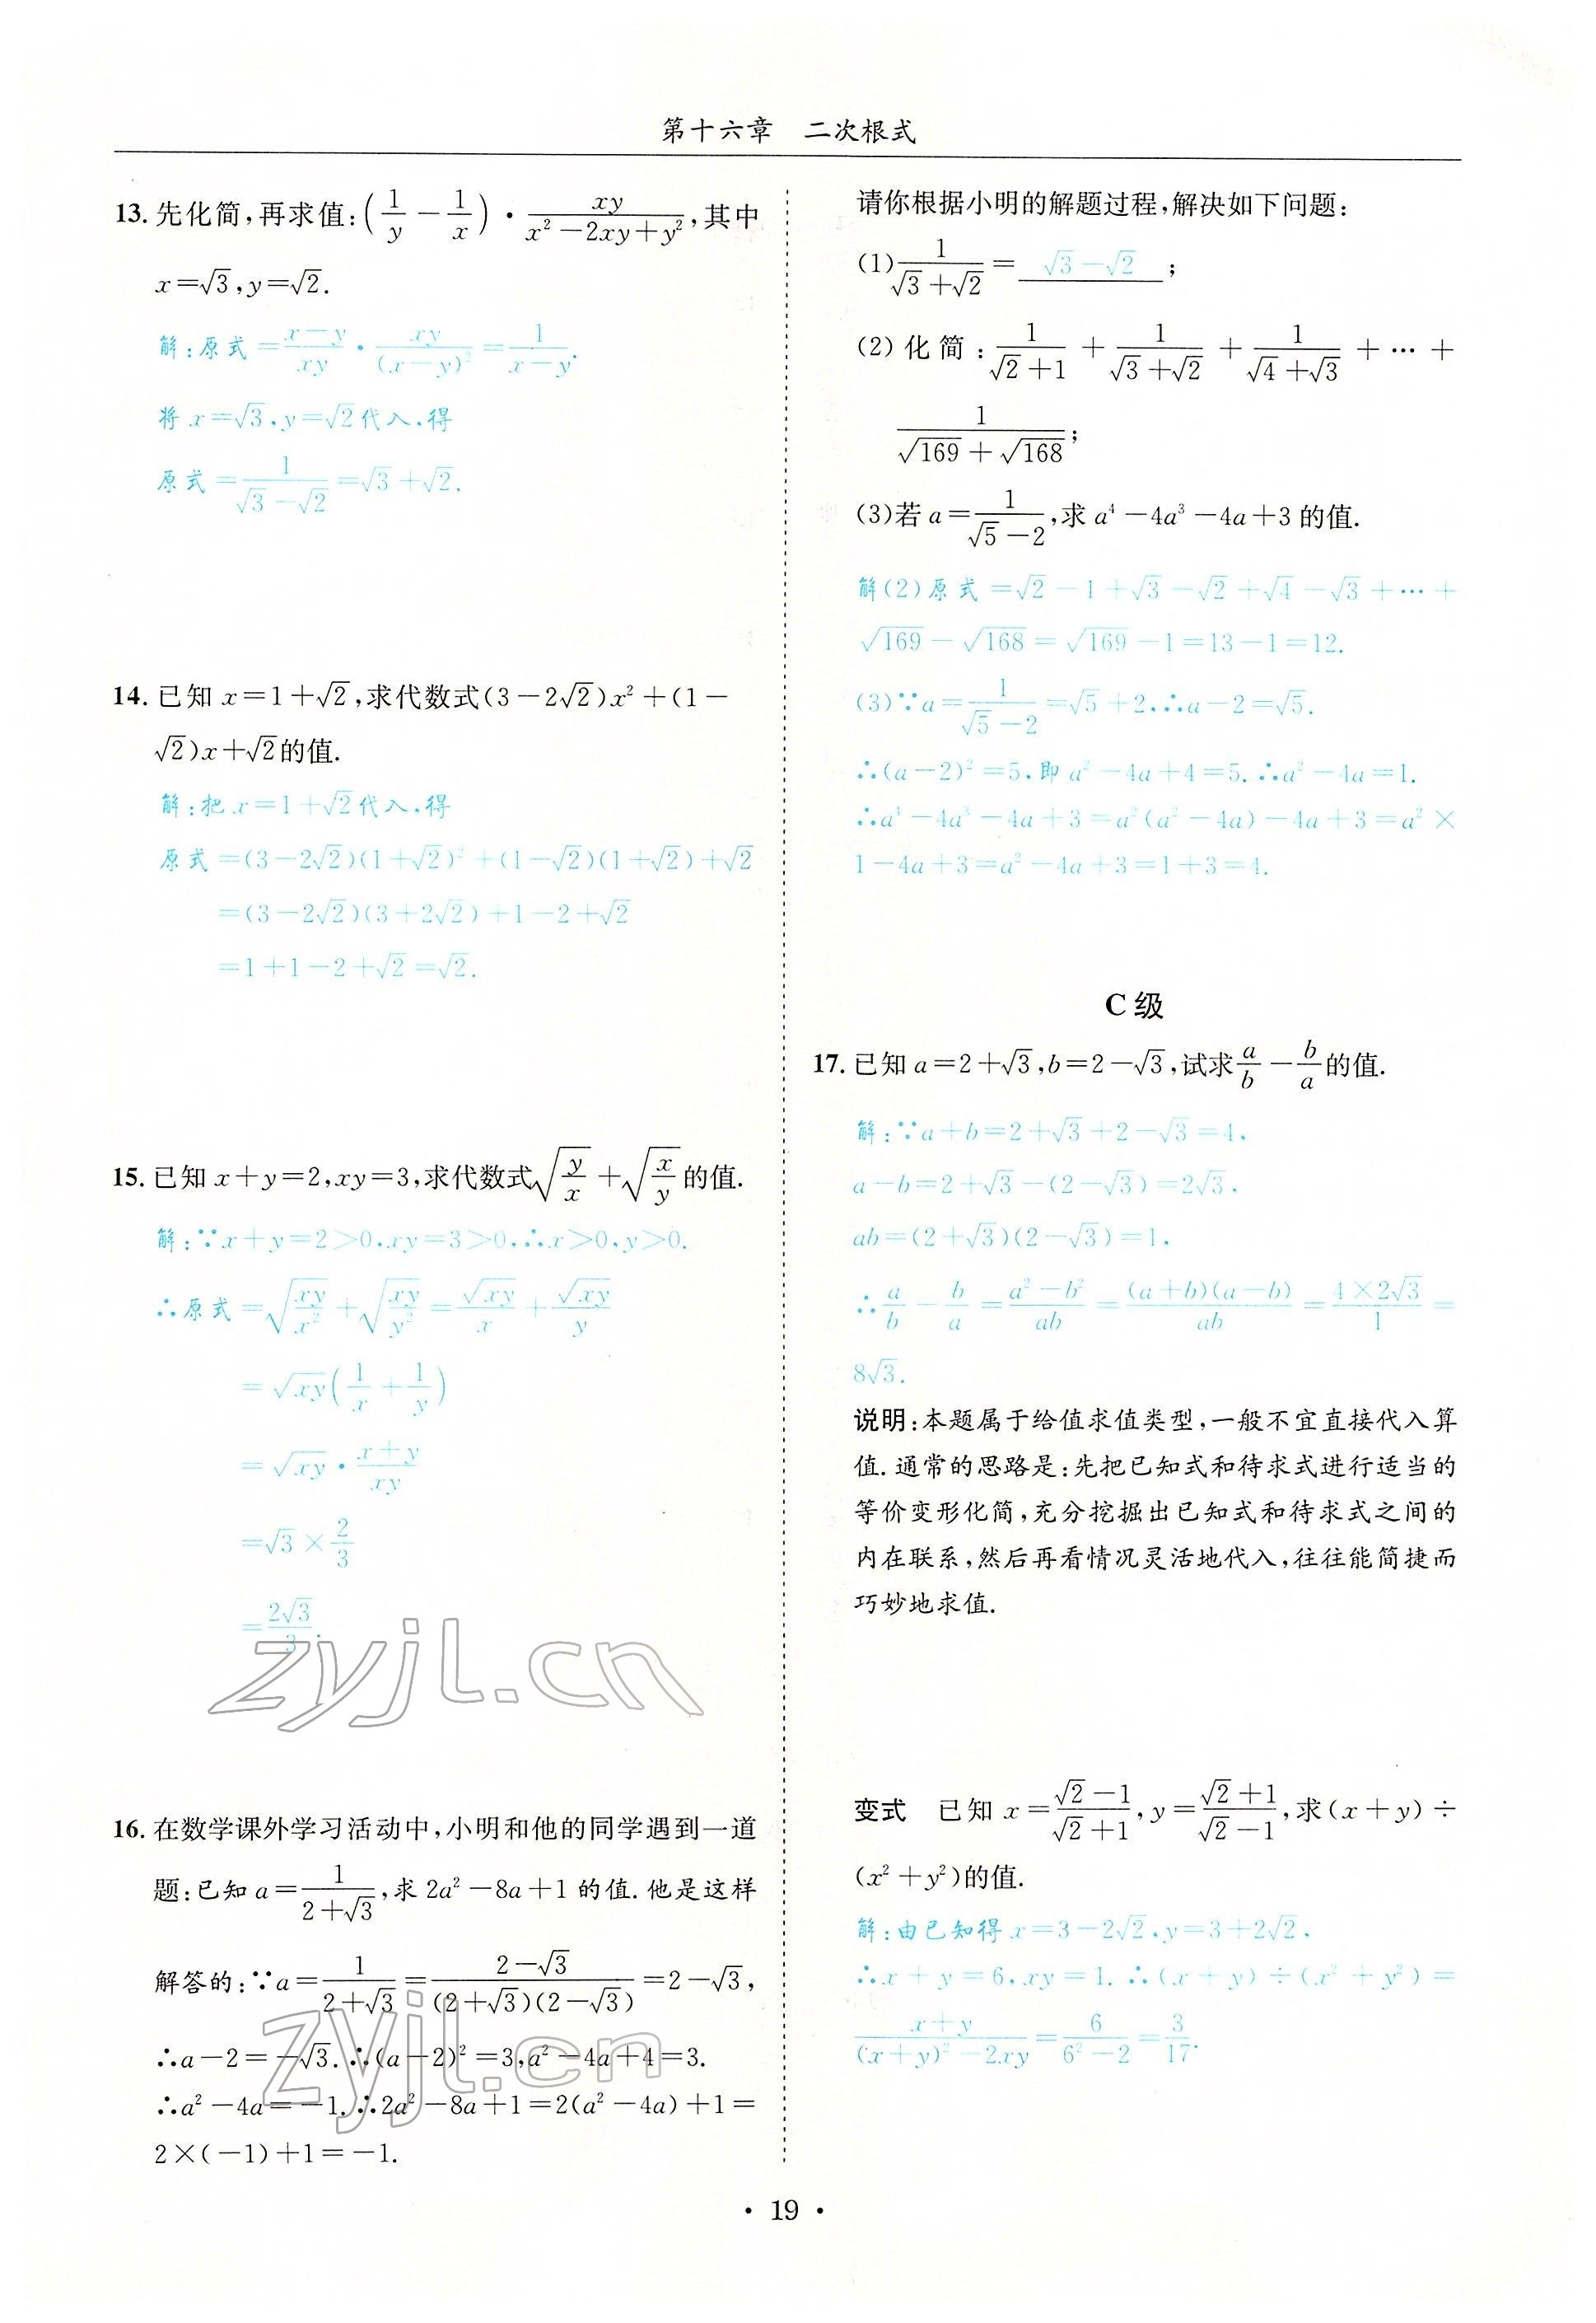 第十六章　二次根式
13. 先化简,再求值:(1/y－1/x)·xy/(x²－2xy＋y²),其中
x＝√3,y＝√2.
解:原式＝(x－y)/xy·xy/(x－y)²＝1/(x－y).
将x＝√3,y＝√2代入,得
原式＝1/(√3－√2)＝√3＋√2.
14. 已知x＝1＋√2,求代数式(3－2√2)x²＋(1－
√2)x＋√2的值.
解:把x＝1＋√2代入,得
原式＝(3－2√2)(1＋√2)²＋(1－√2)(1＋√2)＋√2
＝(3－2√2)(3＋2√2)＋1－2＋√2
＝1＋1－2＋√2＝√2.
15. 已知x＋y＝2,xy＝3,求代数式√(y/x)＋√(x/y)的值.
解:∵x＋y＝2>0,xy＝3>0,∴x>0,y>0.
∴原式＝√(xy/x²)＋√(xy/y²)＝√(xy)/x＋√(xy)/y
＝√(xy)(1/x＋1/y)
＝√(xy)·(x＋y)/xy
＝√3×2/3
＝2√3/3.
zyjl.cn
16. 在数学课外学习活动中,小明和他的同学遇到一道
题:已知a＝1/(2＋√3),求2a²－8a＋1的值.他是这样
解答的:∵a＝1/(2＋√3)＝(2－√3)/((2＋√3)(2－√3))＝2－√3,
∴a－2＝－√3.∴(a－2)²＝3,a²－4a＋4＝3.
∴a²－4a＝－1.∴2a²－8a＋1＝2(a²－4a)＋1＝
2×(－1)＋1＝－1.
zyjl.cn
请你根据小明的解题过程,解决如下问题:
(1)1/(√3＋√2)＝√3－√2;
(2)化简:1/(√2＋1)＋1/(√3＋√2)＋1/(√4＋√3)＋…＋
1/(√169＋√168);
(3)若a＝1/(√5－2),求a⁴－4a³－4a＋3的值.
解(2)原式＝√2－1＋√3－√2＋√4－√3＋…＋
√169－√168＝√169－1＝13－1＝12.
(3)∵a＝1/(√5－2)＝√5＋2,∴a－2＝√5.
∴(a－2)²＝5,即a²－4a＋4＝5.∴a²－4a＝1.
∴a⁴－4a³－4a＋3＝a²(a²－4a)－4a＋3＝a²×
1－4a＋3＝a²－4a＋3＝1＋3＝4.
C级
17. 已知a＝2＋√3,b＝2－√3,试求a/b－b/a的值.
解:∵a＋b＝2＋√3＋2－√3＝4,
a－b＝2＋√3－(2－√3)＝2√3,
ab＝(2＋√3)(2－√3)＝1,
∴a/b－b/a＝(a²－b²)/ab＝(a＋b)(a－b)/ab＝4×2√3/1＝
8√3.
说明:本题属于给值求值类型,一般不宜直接代入算
值.通常的思路是:先把已知式和待求式进行适当的
等价变形化简,充分挖掘出已知式和待求式之间的
内在联系,然后再看情况灵活地代入,往往能简捷而
巧妙地求值.
变式　已知x＝(√2－1)/(√2＋1),y＝(√2＋1)/(√2－1),求(x＋y)÷
(x²＋y²)的值.
解:由已知得x＝3－2√2,y＝3＋2√2,
∴x＋y＝6,xy＝1.∴(x＋y)÷(x²＋y²)＝
(x＋y)/((x＋y)²－2xy)＝6/(6²－2)＝3/17.
·19·